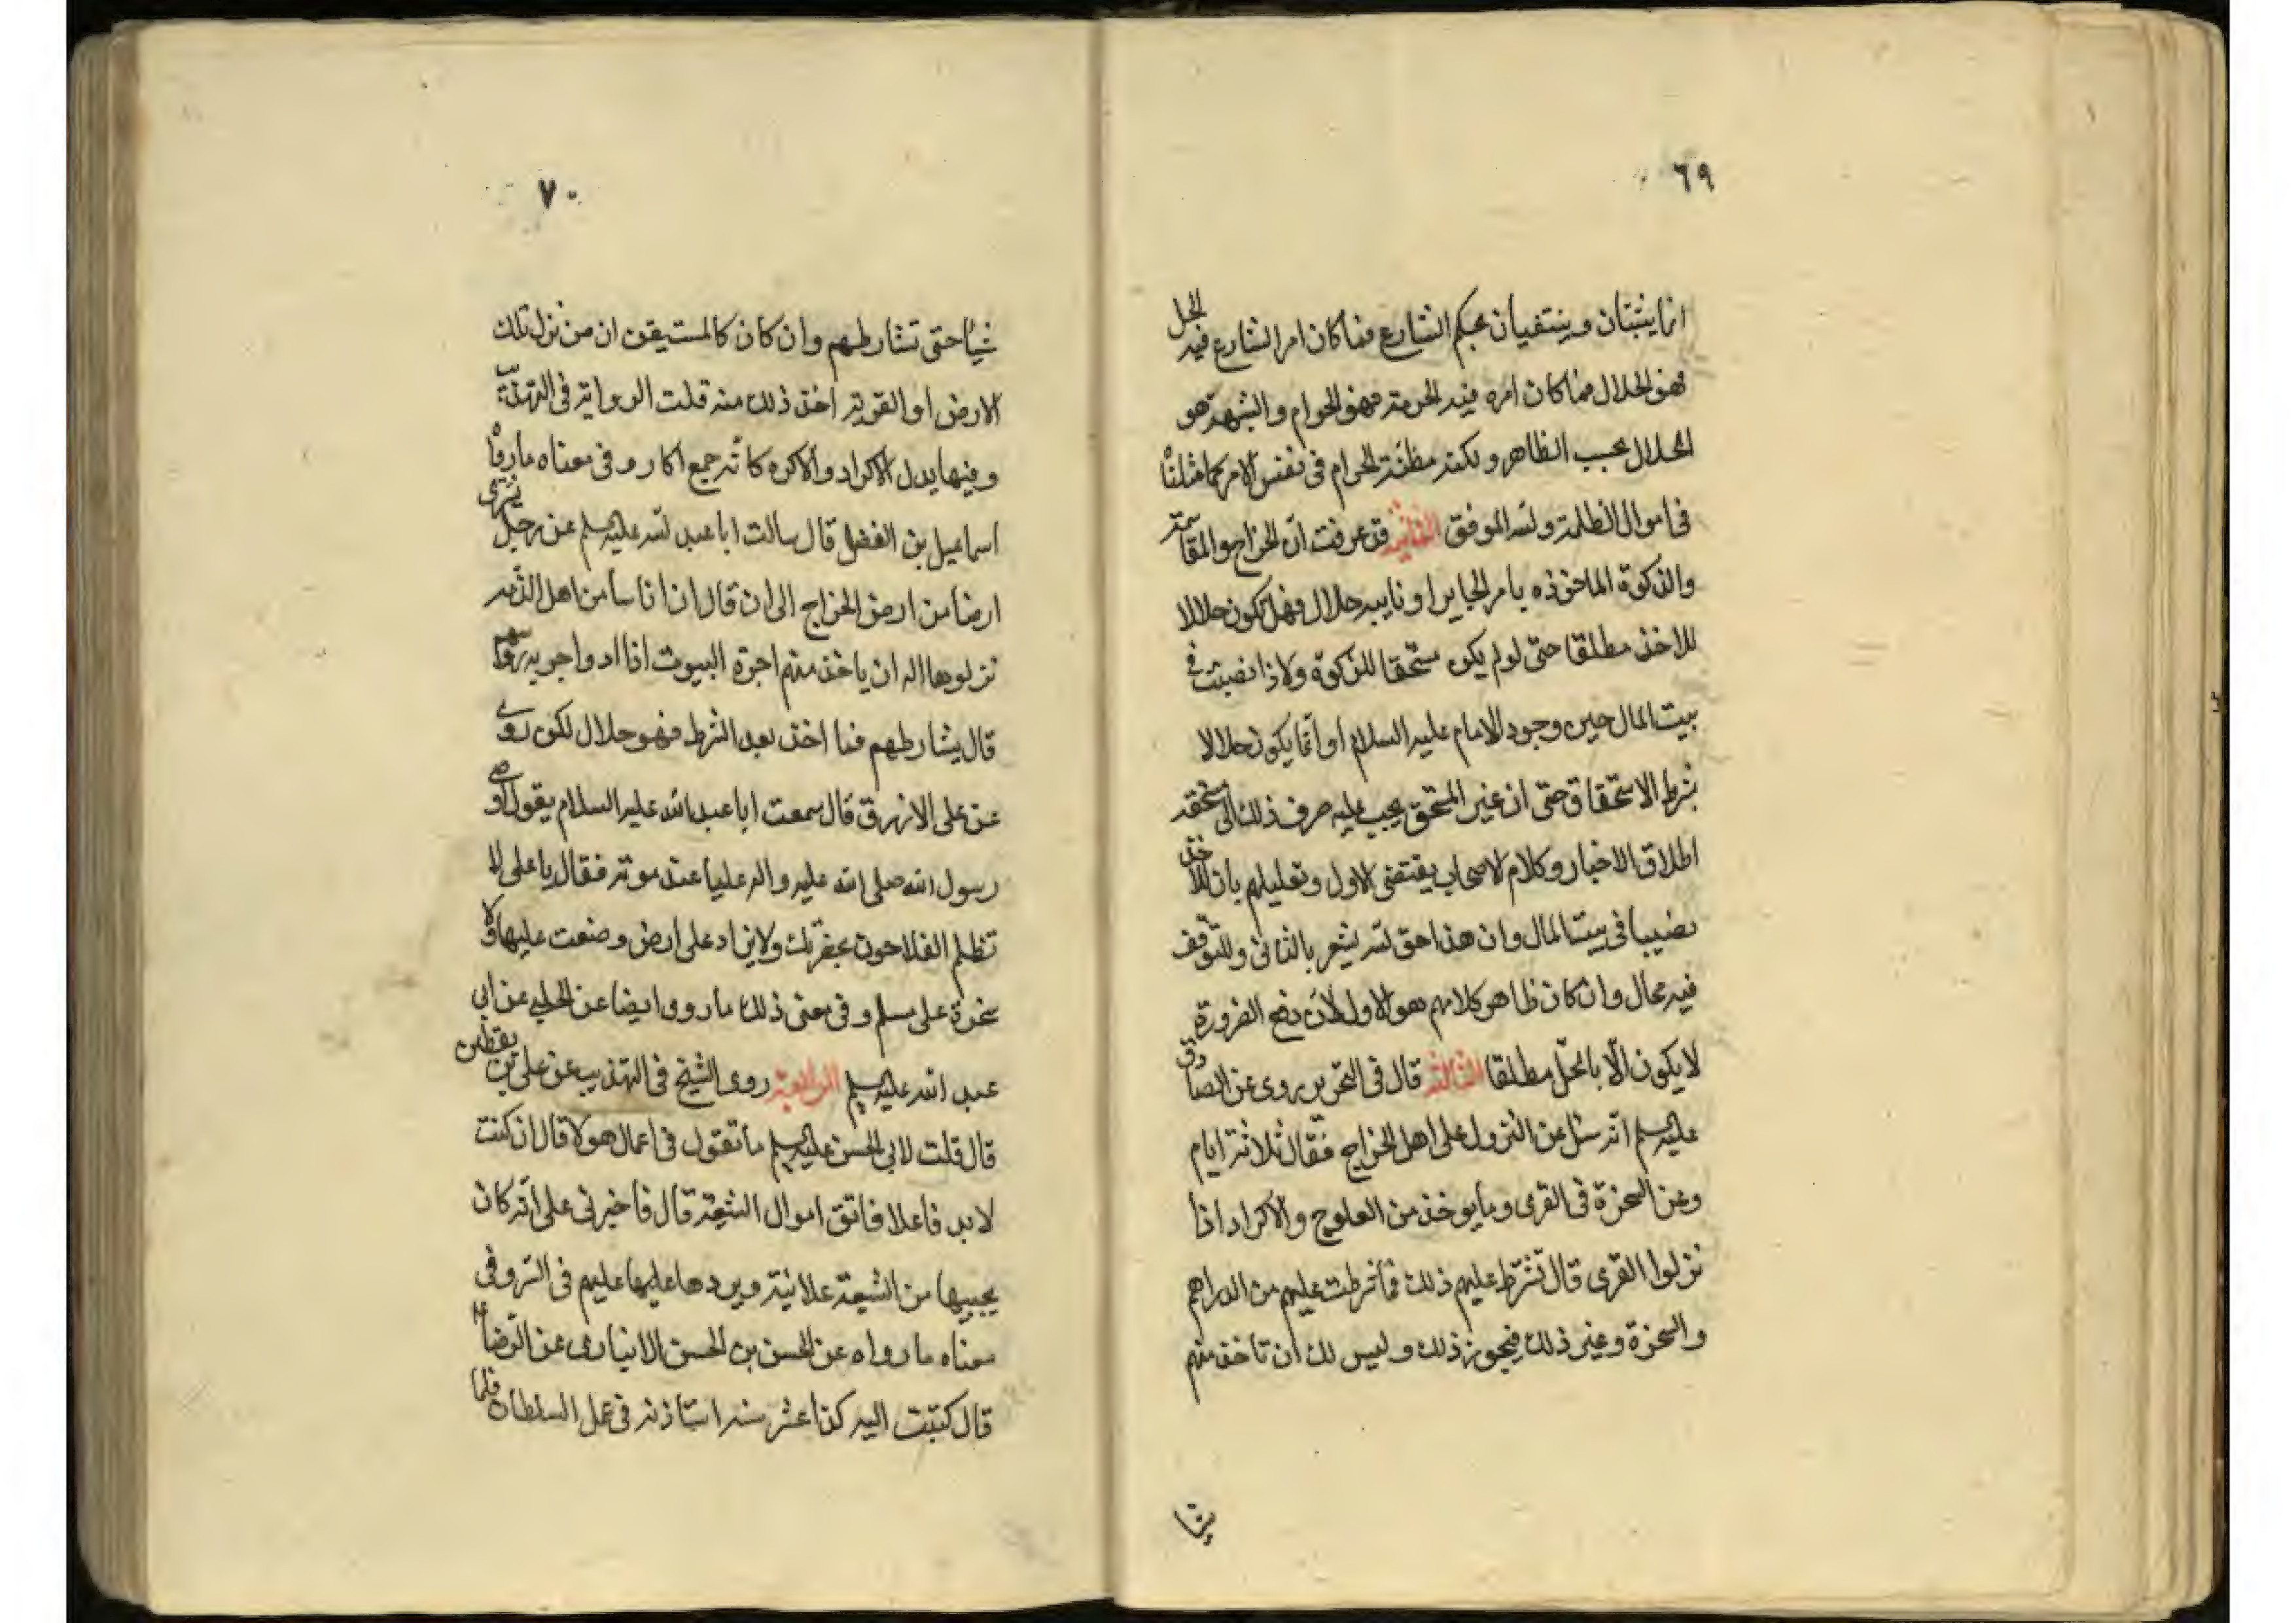 ٦٩
انما يثبتان وينتفيان بحكم الشارع فما كان امر الشارع فيه الحل
فهو الحلال فما كان امره فيه الحرمة فهو الحرام والشبهة هو
الحلال بحسب الظاهر ولكنه مظنة الحرام في نفس الامر كما مثلنا
في اموال الظلمة والله الموفق الثانية قد عرفت ان الخراج والمقاسمة
والزكوة الماخوذه بامر الجاير او نايبه حلال فهل تكون حلالا
للاخذ مطلقا حتى لو لم يكن مستحقا للزكوة ولا ذا نصيب في
بيت المال حين وجود الامام عليه السلام او انما يكون حلالا
بشرط الاستحقاق حتى ان غير المستحق يجب عليه صرف ذلك الى مستحقه
اطلاق الاخبار وكلام الاصحاب يقتضي الاول وتعليلهم بان للاخذ
نصيبا في بيت المال وان هذا حق لله يشعر بالثاني وللتوقف
فيه مجال وان كان ظاهر كلامهم هو الاول لان دفع الضرورة
لا يكون الا بالحل مطلقا الثالثة قال في التحرير روى عن الصادق
عليه السلم انه سئل عن النزول على اهل الخراج فقال ثلاثة ايام
وعن السخرة في القرى وما يوخذ من العلوج والاكراد اذا
نزلوا القرى قال تشترط عليهم ذلك فما شرطت عليهم من الدراهم
والسخرة وغير ذلك فيجوز ذلك وليس لك ان تاخذ منهم
شيئا
٧٠
شيئا حتى تشارطهم وان كان كالمستيقن ان من نزل تلك
الارض او القرية اخذ ذلك منه قلت الرواية في التهذيب
وفيها بدل الاكراد والاكره كانه جمع اكار وفي معناه ما رواه
اسماعيل بن الفضل قال سالت ابا عبد الله عليه السلم عن رجل يشترى
ارضا من ارض الخراج الى ان قال ان اناسا من اهل الذمه
نزلوها اله ان ياخذ منهم اجرة البيوت اذا ادوا جزية رؤسهم
قال يشارطهم فما اخذ بعد الشرط فهو حلال لكن روى
عن على الازرق قال سمعت ابا عبد الله عليه السلام يقول اوصى
رسول الله صلى الله عليه واله عليا عند موته فقال يا على لا
تظلم الفلاحون بحضرتك ولا يزاد على ارض وضعت عليها ولا
سخرة على مسلم وفي معنى ذلك ما روى ايضا عن الحلبي عن ابي
عبد الله عليه السلم الرابعة روى الشيخ في التهذيب عن على بن يقطين
قال قلت لابي الحسن عليه السلم ما تقول في اعمال هولا قال ان كنت
لا بد فاعلا فاتق اموال الشيعة قال فاخبرنى على انه كان
يجبيها من الشيعة علانية ويردها عليها عليهم في السر وفي
معناه ما رواه عن الحسن بن الحسن الانبارى عن الرضا
قال كتبت اليه كذا عشر سنه استاذنه في عمل السلطان فلما